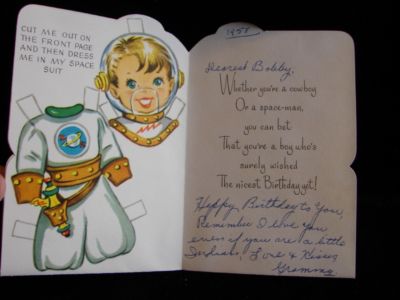 CUT ME OUT ON
THE FRONT PAGE
AND THEN DRESS
ME IN MY SPACE
SUIT
1958
Dearest Bobby,
Whether you're a cowboy
Or a space-man,
you can bet
That you're a boy who's
surely wished
The nicest Birthday yet!
Happy Birthday to you,
Remember I love you
even if you are a little
Indian, Love & Kisses
Grammy